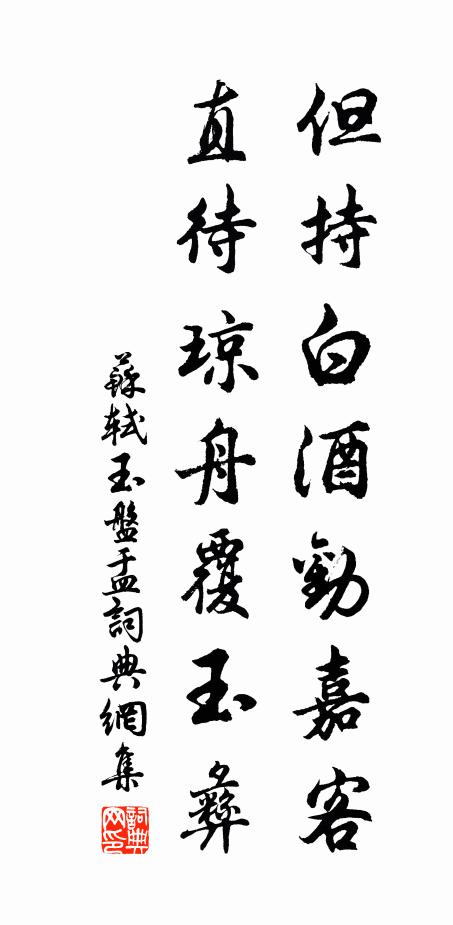 但持白酒勸嘉客
直待琼舟覆玉彝
蘇軾玉盤盂詞典網集
詞典网印